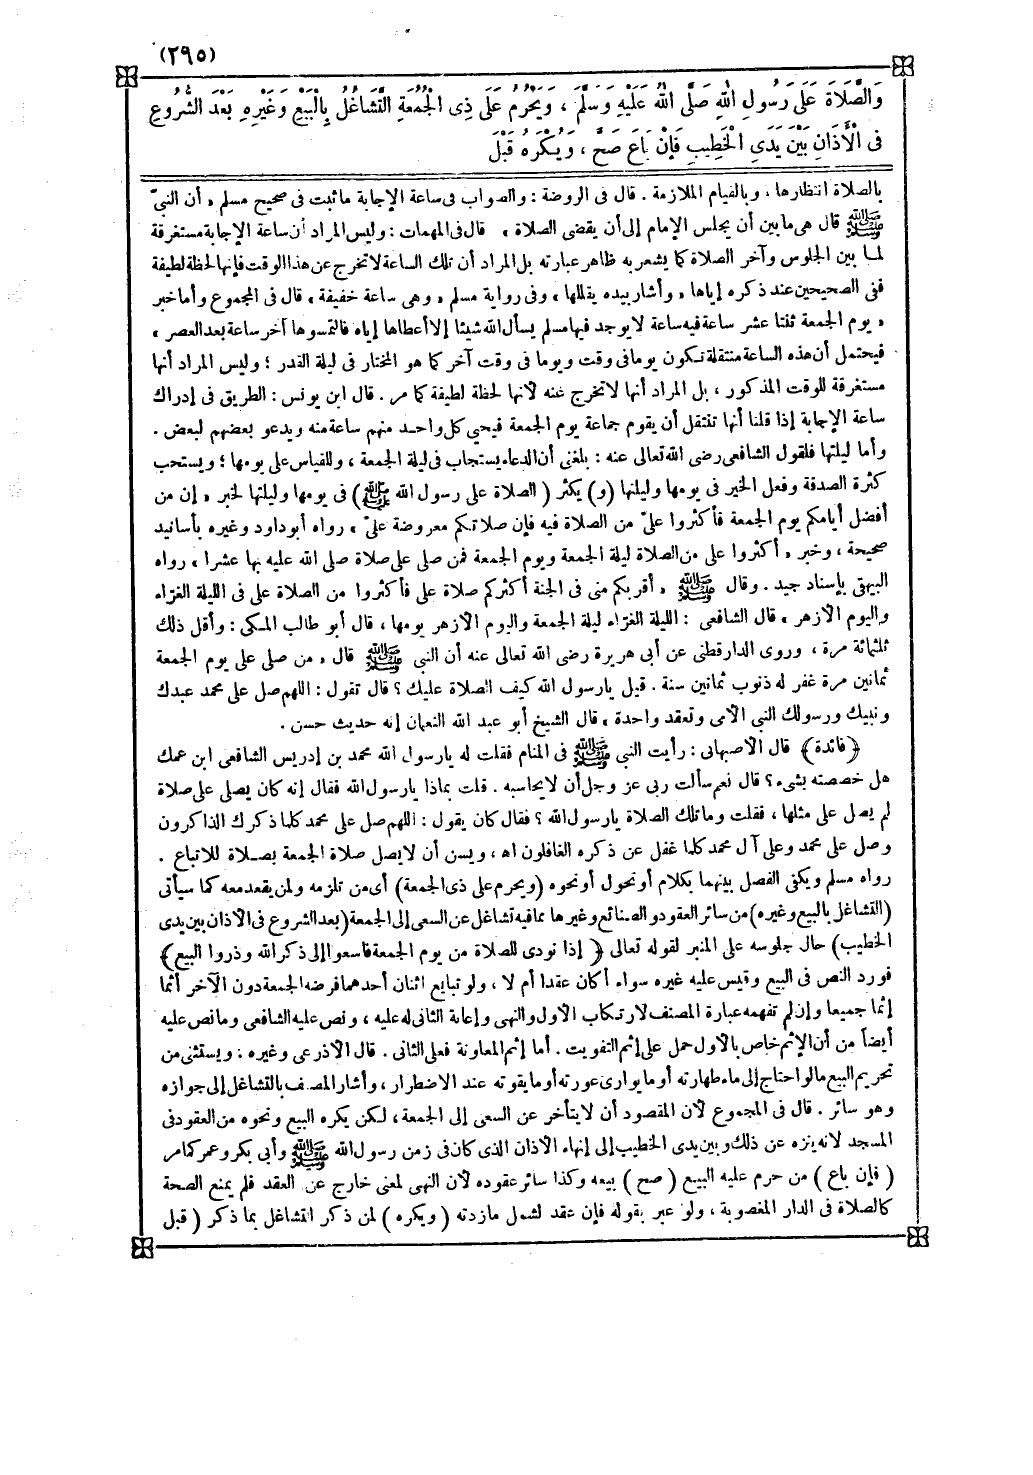 (٢٩٥)
وَالصَّلَاةَ عَلَى رَسُولِ اللهِ صَلَّى اللهُ عَلَيْهِ وَسَلَّمَ ، وَيَحْرُمُ عَلَى ذِى الْجُمُعَةِ التَّشَاغُلُ بِالْبَيْعِ وَغَيْرِهِ بَعْدَ الشُّرُوعِ
فِى الْأَذَانِ بَيْنَ يَدَىِ الْخَطِيبِ فَإِنْ بَاعَ صَحَّ ، وَيُكْرَهُ قَبْلَ
بالصلاة انتظارها ، وبالقيام الملازمة . قال فى الروضة : والصواب فى ساعة الإجابة ما ثبت فى صحيح مسلم « أن النبىّ
ﷺ قال هى ما بين أن يجلس الإمام إلى أن يقضى الصلاة » قال فى المهمات : وليس المراد أن ساعة الإجابة مستغرقة
لما بين الجلوس وآخر الصلاة كما يشعر به ظاهر عبارته بل المراد أن تلك الساعة لا تخرج عن هذا الوقت فإنها لحظة لطيفة
ففى الصحيحين عند ذكره إياها « وأشار بيده يقللها » وفى رواية مسلم « وهى ساعة خفيفة » قال فى المجموع وأما خبر
« يوم الجمعة ثنتا عشر ساعة فيه ساعة لا يوجد فيها مسلم يسأل الله شيئا إلا أعطاها إياه فالتمسوها آخر ساعة بعد العصر »
فيحتمل أن هذه الساعة منتقلة تكون يوما فى وقت ويوما فى وقت آخر كما هو المختار فى ليلة القدر ؛ وليس المراد أنها
مستغرقة للوقت المذكور ، بل المراد أنها لا تخرج عنه لأنها لحظة لطيفة كما مر . قال ابن يونس : الطريق فى إدراك
ساعة الإجابة إذا قلنا أنها تنتقل أن يقوم جماعة يوم الجمعة فيحيى كل واحد منهم ساعة منه ويدعو بعضهم لبعض .
وأما ليلتها فلقول الشافعى رضى الله تعالى عنه : بلغنى أن الدعاء يستجاب فى ليلة الجمعة ، وللقياس على يومها ؛ ويستحب
كثرة الصدقة وفعل الخير فى يومها وليلتها (و) يكثر ( الصلاة على رسول الله ﷺ) فى يومها وليلتها لخبر « إن من
أفضل أيامكم يوم الجمعة فأكثروا علىّ من الصلاة فيه فإن صلاتكم معروضة علىّ » رواه أبو داود وغيره بأسانيد
صحيحة ، وخبر « أكثروا على من الصلاة ليلة الجمعة ويوم الجمعة فمن صلى على صلاة صلى الله عليه بها عشرا » رواه
البيهقى بإسناد جيد . وقال ﷺ « أقربكم منى فى الجنة أكثركم صلاة على فأكثروا من الصلاة على فى الليلة الغراء
واليوم الأزهر » قال الشافعى : الليلة الغراء ليلة الجمعة واليوم الأزهر يومها ، قال أبو طالب المكى : وأقل ذلك
ثلثمائة مرة ، وروى الدارقطنى عن أبى هريرة رضى الله تعالى عنه أن النبى ﷺ قال « من صلى على يوم الجمعة
ثمانين مرة غفر له ذنوب ثمانين سنة . قيل يا رسول الله كيف الصلاة عليك ؟ قال تقول : اللهم صل على محمد عبدك
ونبيك ورسولك النبى الأمى وتعقد واحدة » قال الشيخ أبو عبد الله النعمان إنه حديث حسن .
﴿فائدة﴾ قال الأصبهانى : رأيت النبى ﷺ فى المنام فقلت له يا رسول الله محمد بن إدريس الشافعى ابن عمك
هل خصصته بشىء ؟ قال نعم سألت ربى عز وجل أن لا يحاسبه . قلت بماذا يا رسول الله فقال إنه كان يصلى على صلاة
لم يصل على مثلها ، فقلت وما تلك الصلاة يا رسول الله ؟ فقال كان يقول : اللهم صل على محمد كلما ذكرك الذاكرون
وصل على محمد وعلى آل محمد كلما غفل عن ذكره الغافلون اه ، ويسن أن لا يصل صلاة الجمعة بصلاة للاتباع .
رواه مسلم ويكفى الفصل بينهما بكلام أو نحول أو نحوه (ويحرم على ذى الجمعة) أى من تلزمه ولمن يقعد معه كما سيأتى
(التشاغل بالبيع وغيره) من سائر العقود والصنائع وغيرها مما فيه تشاغل عن السعى إلى الجمعة (بعد الشروع فى الأذان بين يدى
الخطيب) حال جلوسه على المنبر لقوله تعالى ﴿ إذا نودى للصلاة من يوم الجمعة فاسعوا إلى ذكر الله وذروا البيع ﴾
فورد النص فى البيع وقيس عليه غيره سواء أكان عقدا أم لا ، ولو تبايع اثنان أحدهما فرضه الجمعة دون الآخر أثما
إثما جميعا وإن لم تفهمه عبارة المصنف لارتكاب الأول والنهى وإعانة الثانى له عليه ، ونص عليه الشافعى وما نص عليه
أيضاً من أن الإثم خاص بالأول حمل على إثم التفويت . أما إثم المعاونة فعلى الثانى . قال الأذرعى وغيره : ويستثنى من
تحريم البيع ما لو احتاج إلى ماء طهارته أو ما يوارى عورته أو ما يقوته عند الاضطرار ، وأشار المصنف بالتشاغل إلى جوازه
وهو سائر . قال فى المجموع لأن المقصود أن لا يتأخر عن السعى إلى الجمعة ، لكن يكره البيع ونحوه من العقود فى
المسجد لأنه ينزه عن ذلك وبين يدى الخطيب إلى إنهاء الأذان الذى كان فى زمن رسول الله ﷺ وأبى بكر وعمر كما مر
( فإن باع ) من حرم عليه البيع ( صح ) بيعه وكذا سائر عقوده لأن النهى لمعنى خارج عن العقد فلم يمنع الصحة
كالصلاة فى الدار المغصوبة ، ولو عبر بقوله فإن عقد لشمل ما زدته ( ويكره ) لمن ذكر التشاغل بما ذكر ( قبل